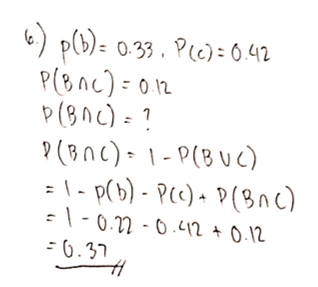 6.) p(b) = 0.33, P(c) = 0.42
P(B∩C) = 0.12
P(B∩C) = ?
P(B∩C) = 1 - P(B∪C)
= 1 - p(b) - P(c) + P(B∩C)
= 1 - 0.22 - 0.42 + 0.12
= 0.37